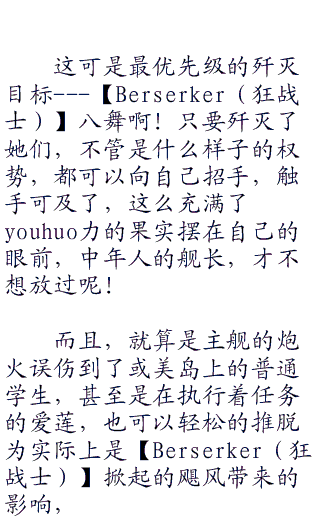 这可是最优先级的歼灭
目标---【Berserker（狂战
士）】八舞啊！只要歼灭了
她们，不管是什么样子的权
势，都可以向自己招手，触
手可及了，这么充满了
youhuo力的果实摆在自己的
眼前，中年人的舰长，才不
想放过呢！
而且，就算是主舰的炮
火误伤到了或美岛上的普通
学生，甚至是在执行着任务
的爱莲，也可以轻松的推脱
为实际上是【Berserker（狂
战士）】掀起的飓风带来的
影响，